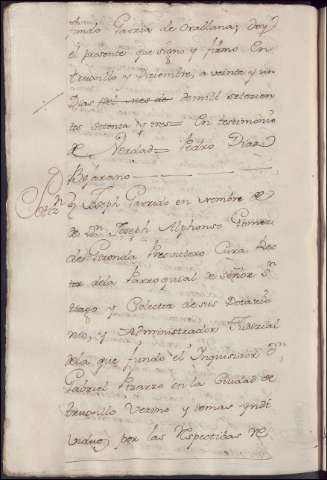 fundo Garcia de Orellana; doy
el presente que signo y firmo En
truxillo y Diziembre, a veinte y un
Dias del mes de de mill setezien
tos setenta y tres = En testimonio
de Verdad = Pedro Diaz
Bejarano
Joseph Garrido en nombre de
de Dn Joseph Alphonso
de Presvitero Cura Rec
tor dela Parroquial de señor Sn
tiago y Colector de sus Dotacio
nes, y Administrador
dela que fundó el Inquisidor Dn
Gabriel Pizarro en la ciudad de
truxillo Vezino y demas yndi
viduos por las Respectibas Re